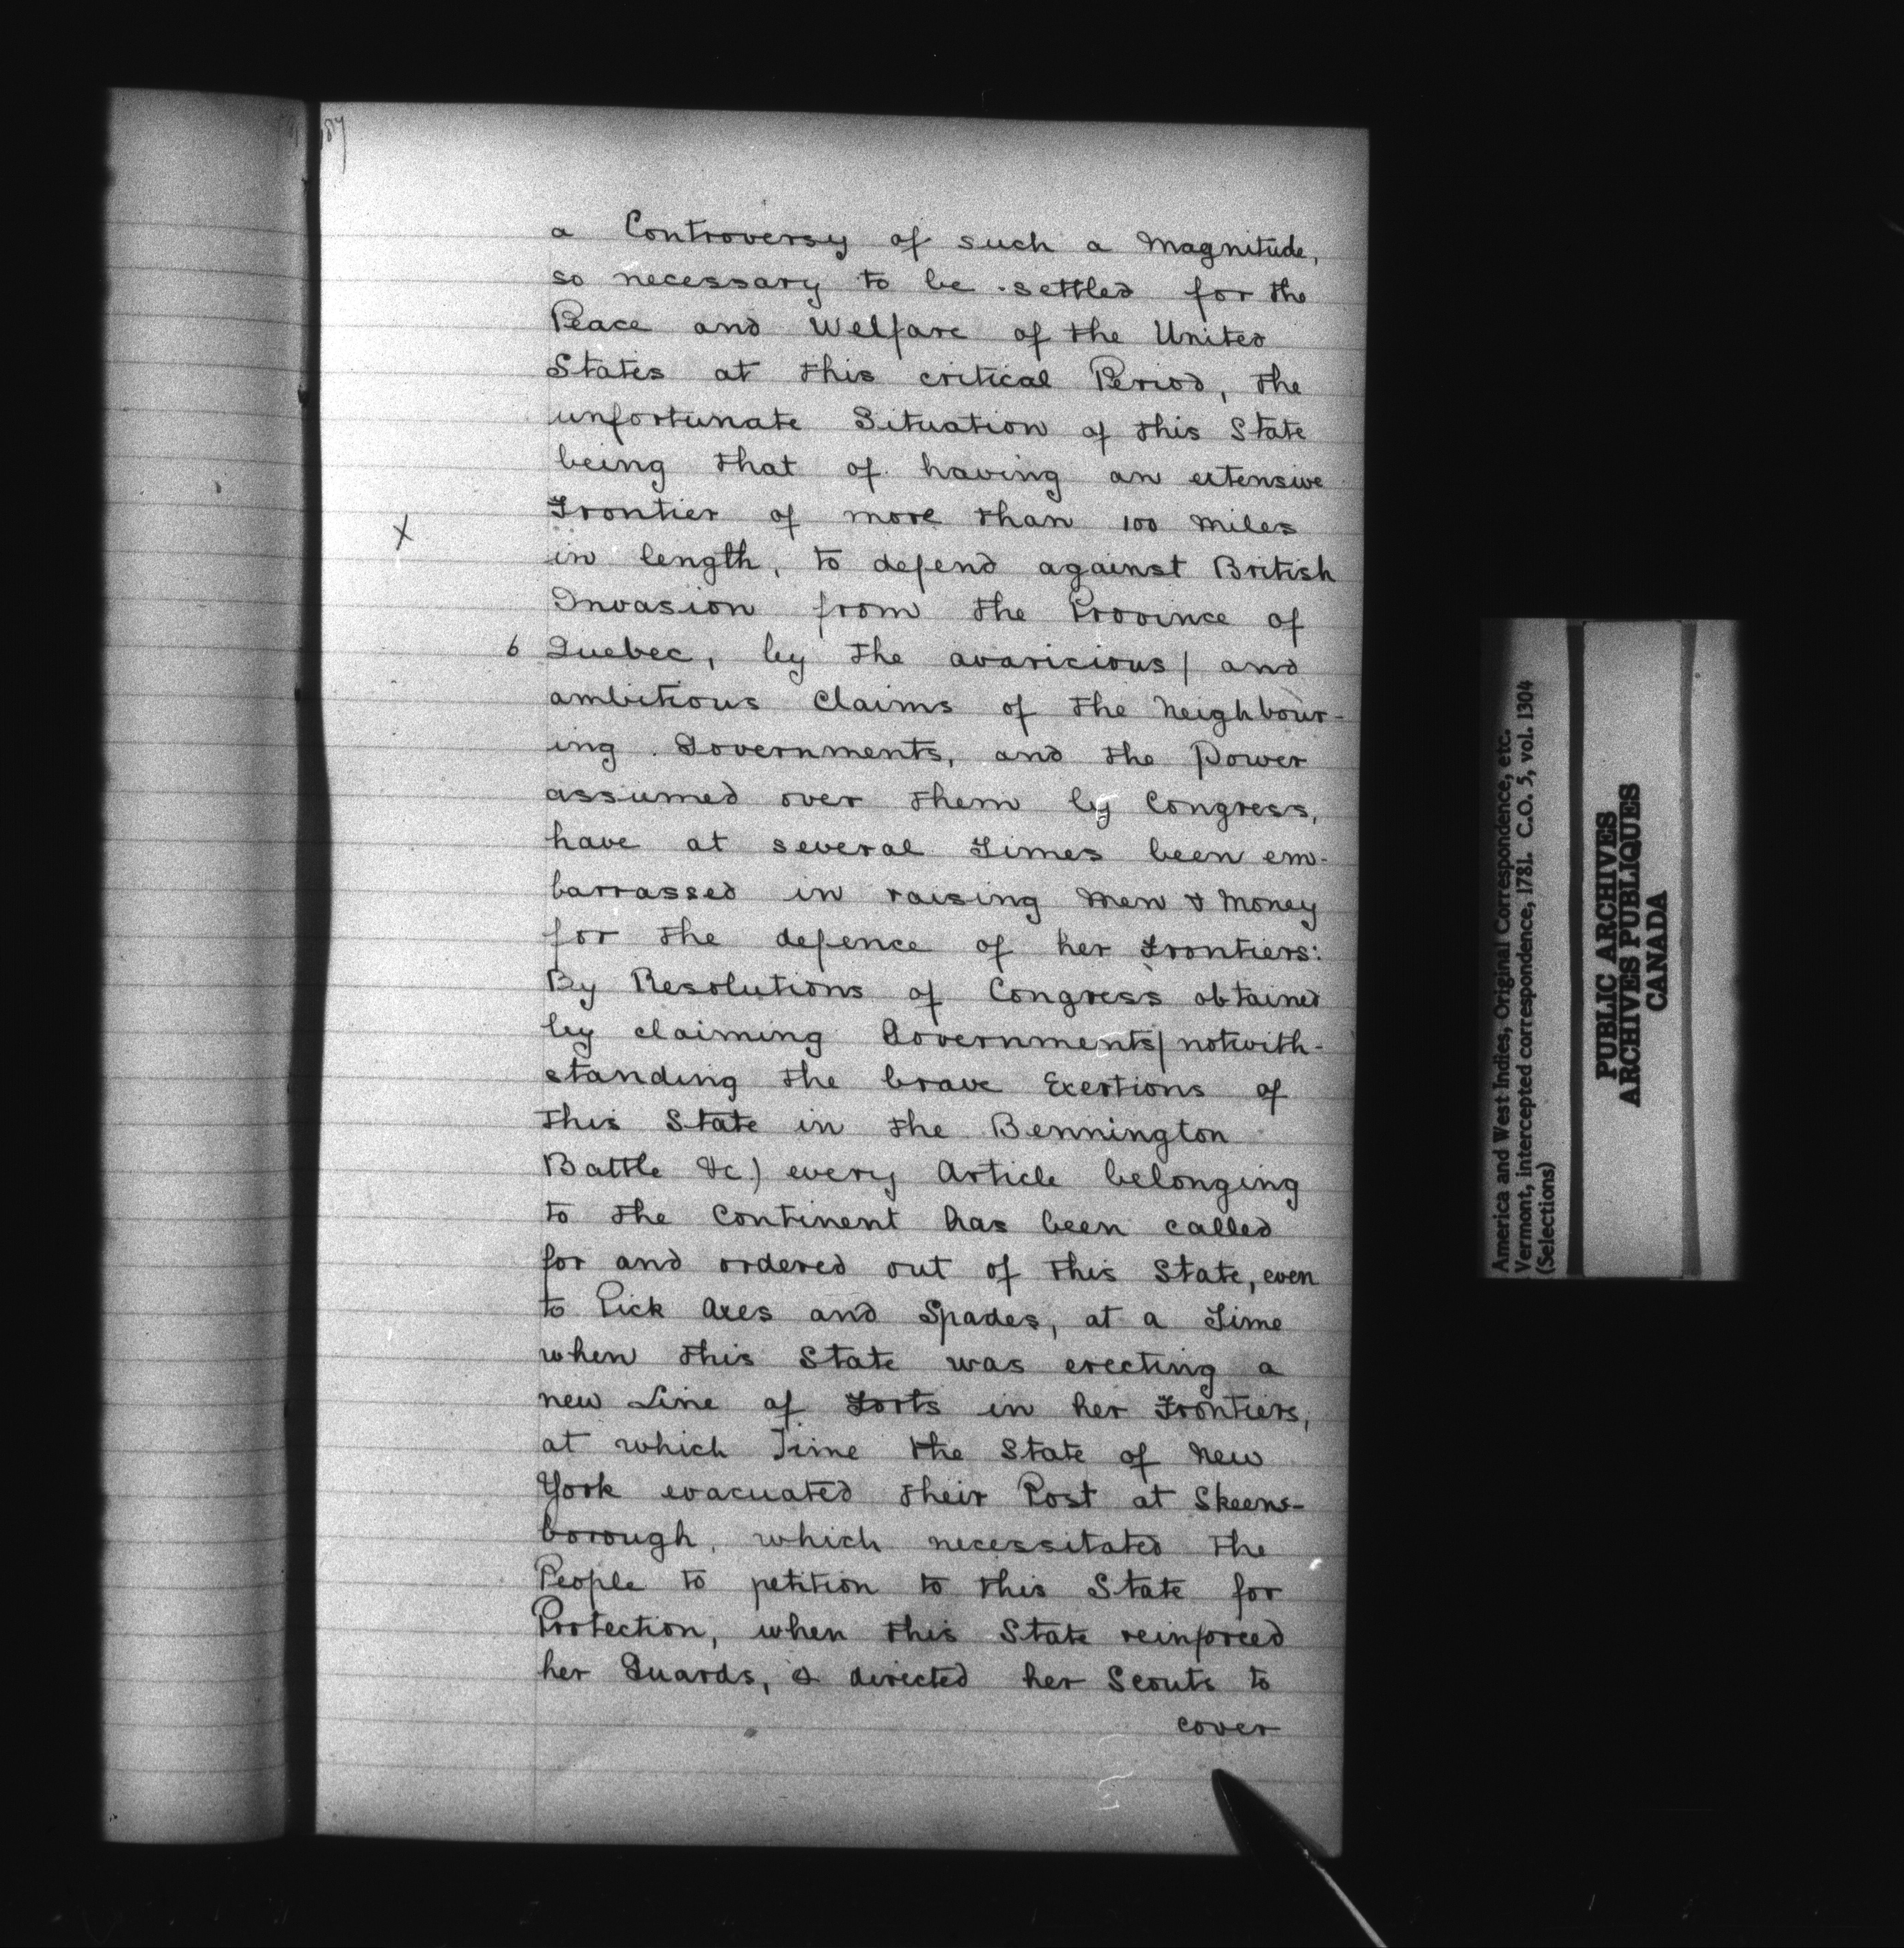 187
a Controversy of such a Magnitude,
so necessary to be settled for the
Peace and Welfare of the United
States at this critical Period, the
unfortunate Situation of this State
being that of having an extensive
Frontier of more than 100 Miles
X
in length, to defend against British
Invasion from the Province of
6 Quebec, by the avaricious | and
ambitious Claims of the Neighbour-
ing Governments, and the Power
assumed over them by Congress,
have at several Times been em-
barrassed in raising Men & Money
for the defence of her Frontiers:
By Resolutions of Congress obtained
by claiming Governments | notwith-
standing the brave Exertions of
this State in the Bennington
Battle &c) every Article belonging
to the Continent has been called
for and ordered out of this State, even
to Pick Axes and Spades, at a Time
when this State was erecting a
new Line of Forts in her Frontiers,
at which Time the State of New
York evacuated their Post at Skeens-
borough, which necessitated the
People to petition to this State for
Protection, when this State reinforced
her Guards, & directed her Scouts to
cover
America and West Indies, Original Correspondence, etc.
Vermont, intercepted correspondence, 1781. C.O. 5, vol. 1304
(Selections)
PUBLIC ARCHIVES
ARCHIVES PUBLIQUES
CANADA